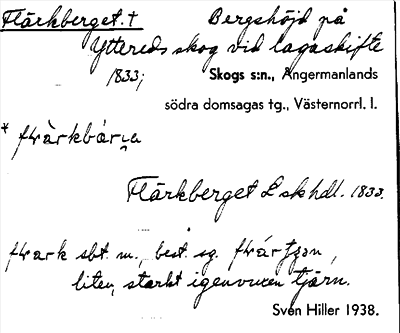 Flärkberget. † Bergshöjd på
Yttereds skog vid lagaskifte
1833; Skogs s:n., Ångermanlands
södra domsagas tg., Västernorrl. l.
* flärkbárja
Flärkberget Lskhdl. 1833.
flark sbt. m., best. sg.
liten, starkt igenvuxen tjärn.
Sven Hiller 1938.